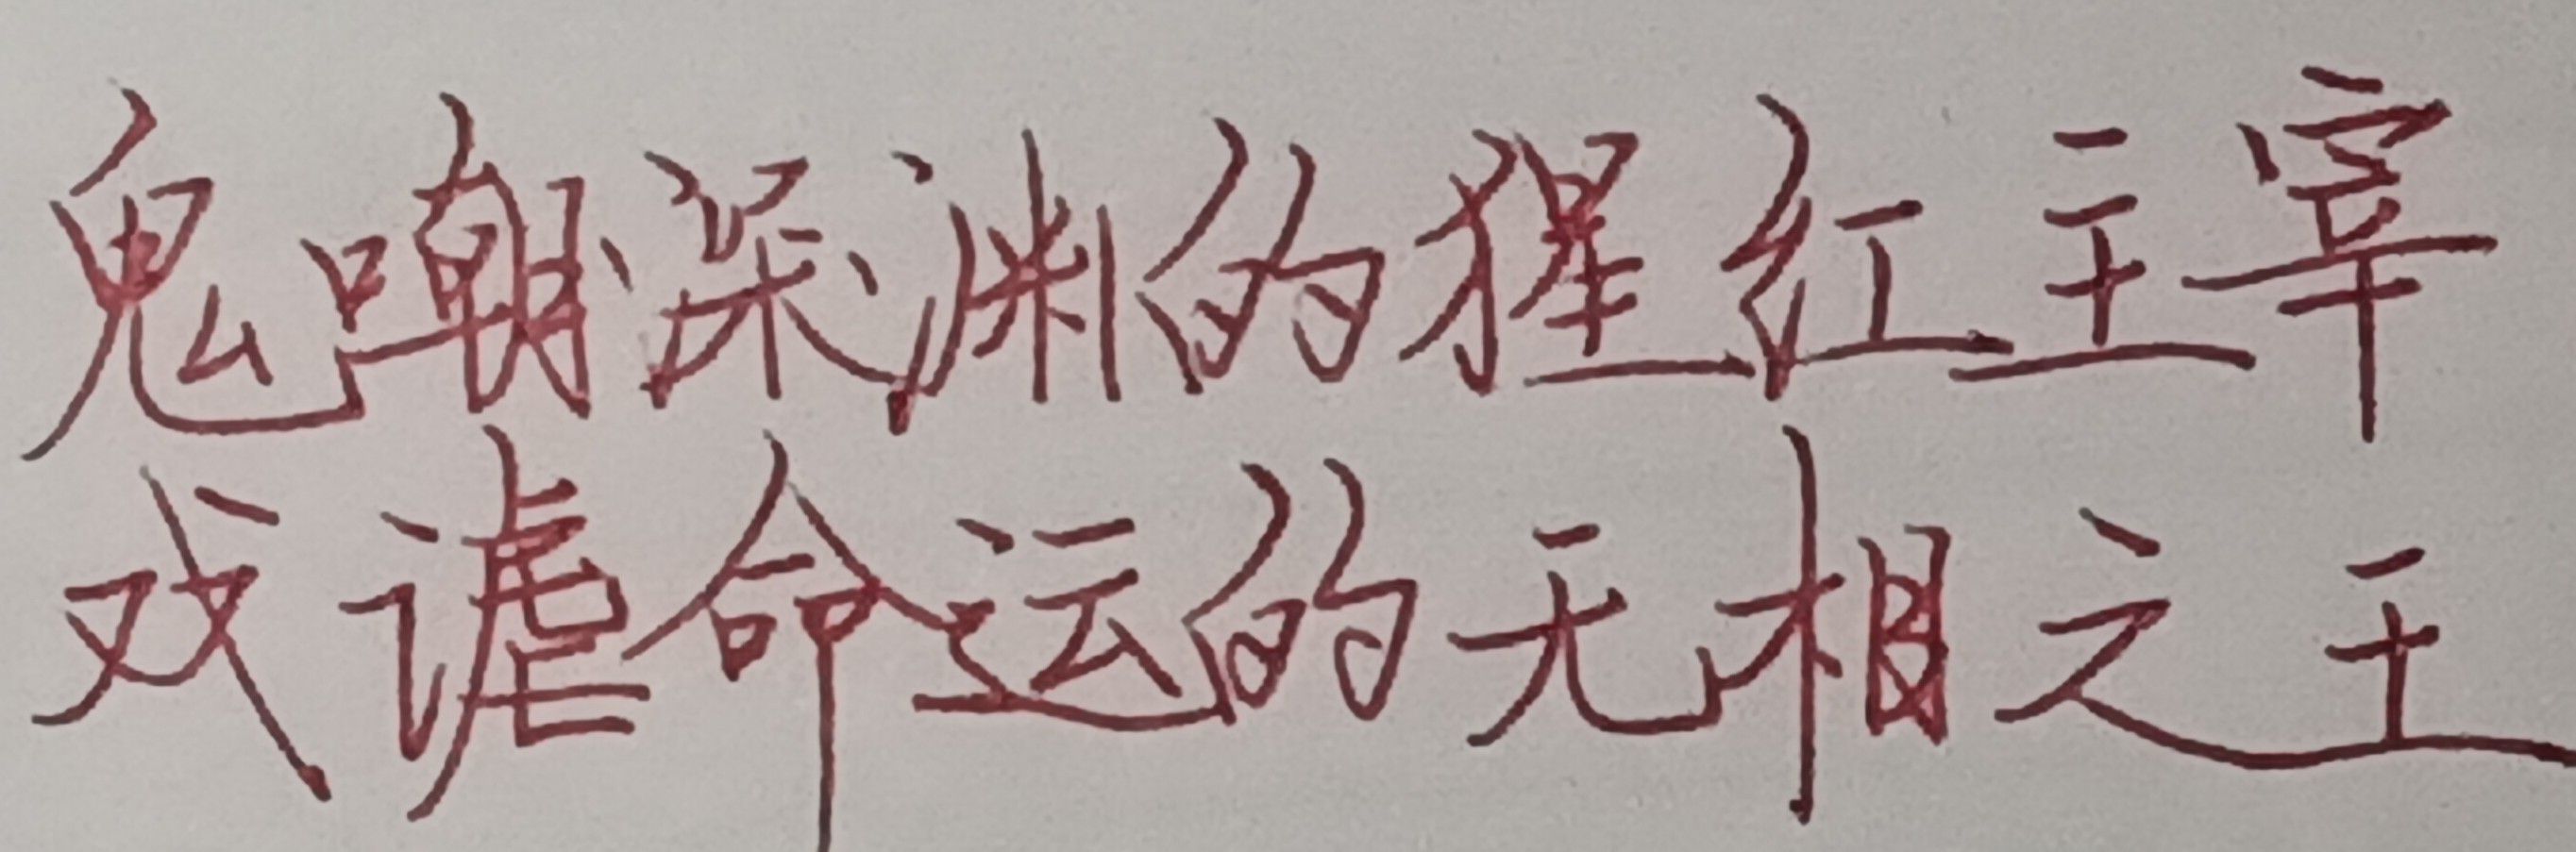 鬼嘲深渊的猩红主宰
戏谑命运的无相之王